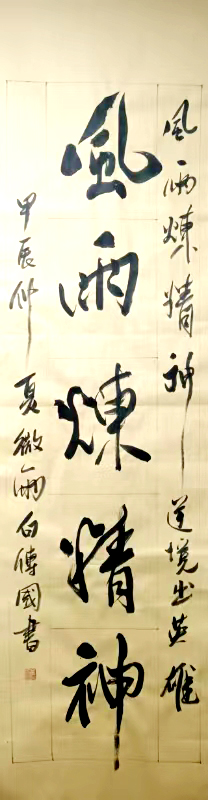 風雨煉精神逆境出英雄
風雨煉精神
甲辰仲夏微雨白傳國書